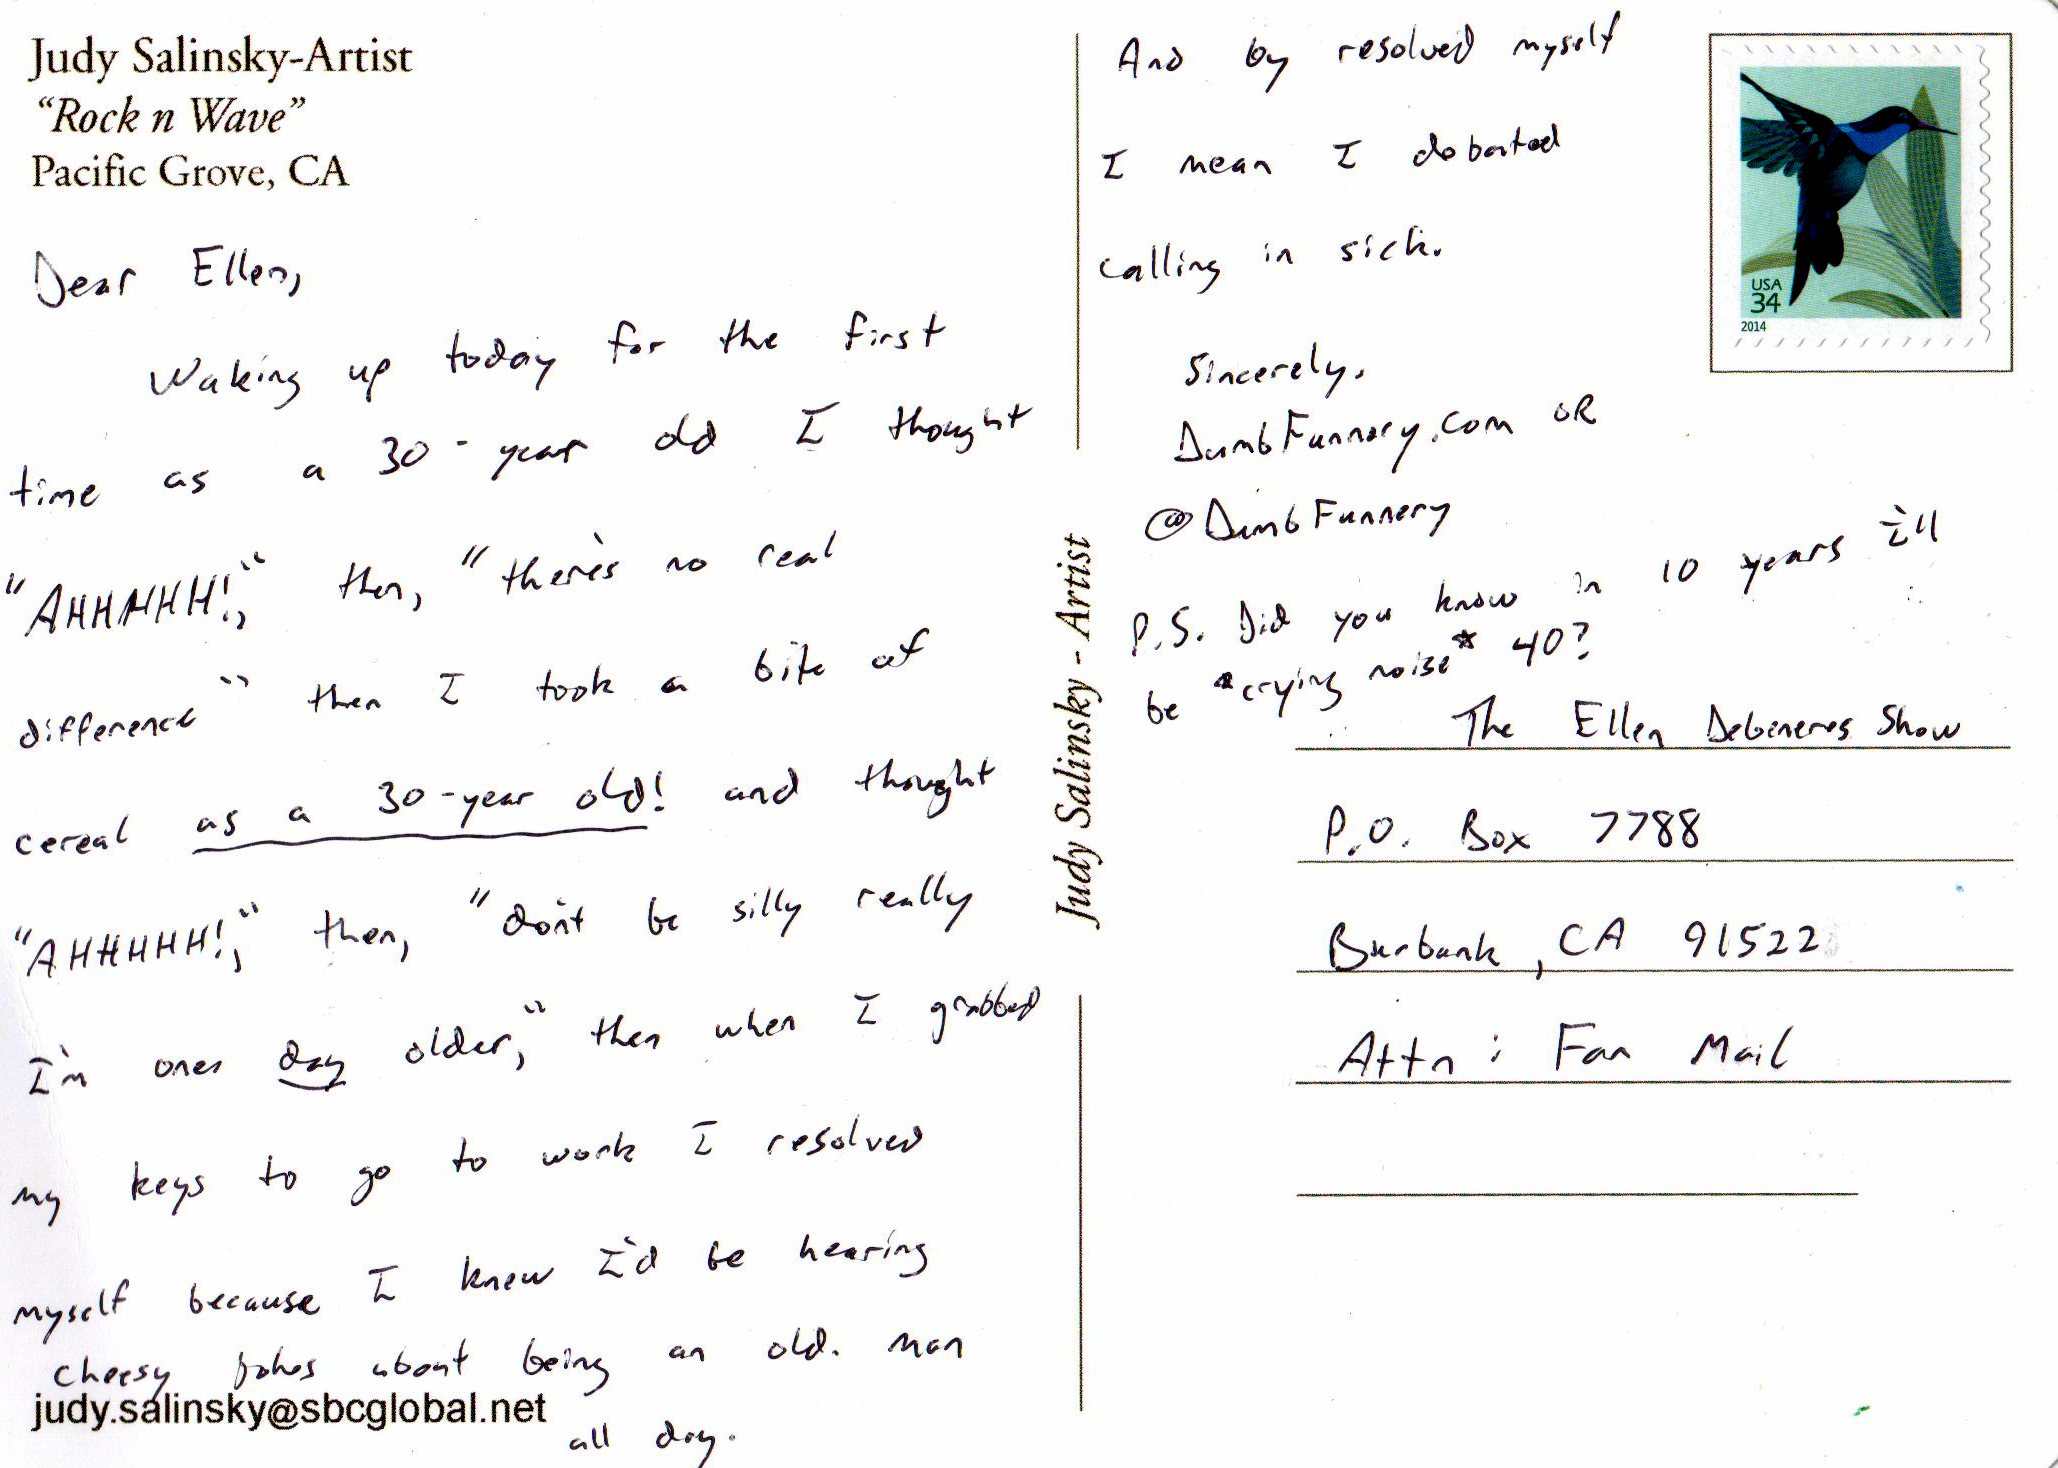 Judy Salinsky-Artist
“Rock n Wave”
Pacific Grove, CA
Dear Ellen,
Waking up today for the first
time as a 30-year old I thought
"AHHHHH!," then, "there's no real
difference" then I took a bite of
cereal as a 30-year old! and thought
"AHHHHH!," then, "don't be silly really
I'm ones day older," then when I grabbed
my keys to go to work I resolved
myself because I knew I'd be hearing
cheesy jokes about being an old. man
judy.salinsky@sbcglobal.net
all day.
Judy Salinsky - Artist
And by resolved myself
I mean I debated
calling in sick.
Sincerely,
DumbFunnery.com OR
@DumbFunnery
P.S. Did you know in 10 years I'll
be *crying noise* 40?
USA
34
2014
The Ellen Debeneres Show
P.O. Box 7788
Burbank, CA 91522
Attn: Fan Mail